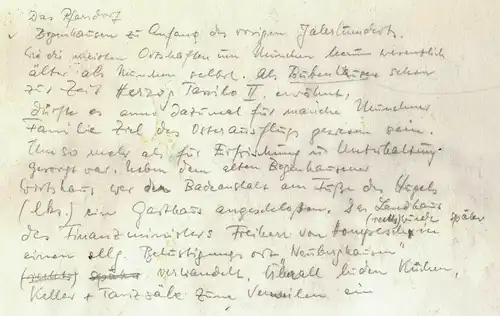 Das Pfarrdorf
Bogenhausen zu Anfang des vorigen Jahrhunderts.
Wie die meisten Ortschaften um München kaum wesentlich
älter als München selbst. Als Bubenhausen schon
zur Zeit Herzog Tassilo II. erwähnt,
dürfte es anno dazumal für manche Münchner
Familie Ziel des Osterausflugs gewesen sein.
Um so mehr als für Erfrischung u. Unterhaltung
gesorgt war. Neben dem alten Bogenhausener
Wirtshaus war der Badeanstalt am Fuße des Hügels
(lks.) ein Gasthaus angeschlossen. Das Landhaus
(rechts) wurde später
des Finanzministers Freiherr von Hompesch in
einen allg. Belustigungsort "Neuberghausen"
(rechts) später verwandelt. Überall luden Küchen,
Keller + Tanzsäle zum Verweilen ein